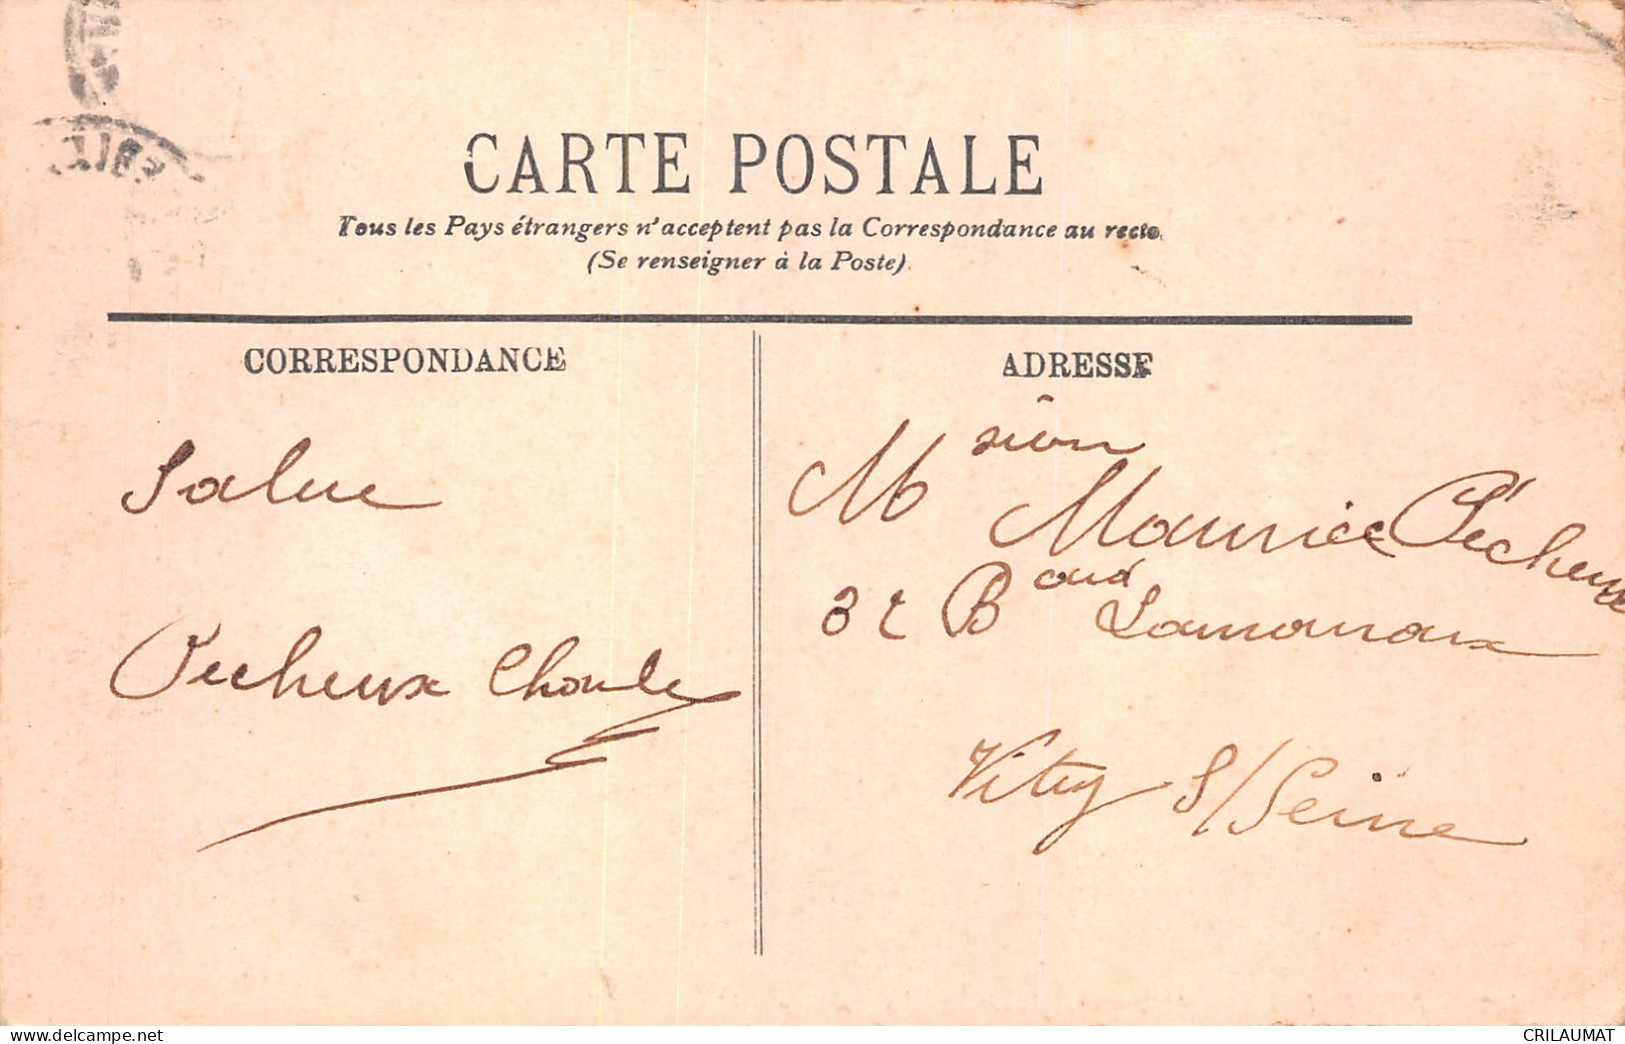 CARTE POSTALE
Tous les Pays étrangers n'acceptent pas la Correspondance au recto.
(Se renseigner à la Poste).
CORRESPONDANCE
ADRESSE
Salue
Pecheux
M
Maurice Pécheux
32 B
Vitry S/Seine
www.delcampe.net
CRILAUMAT